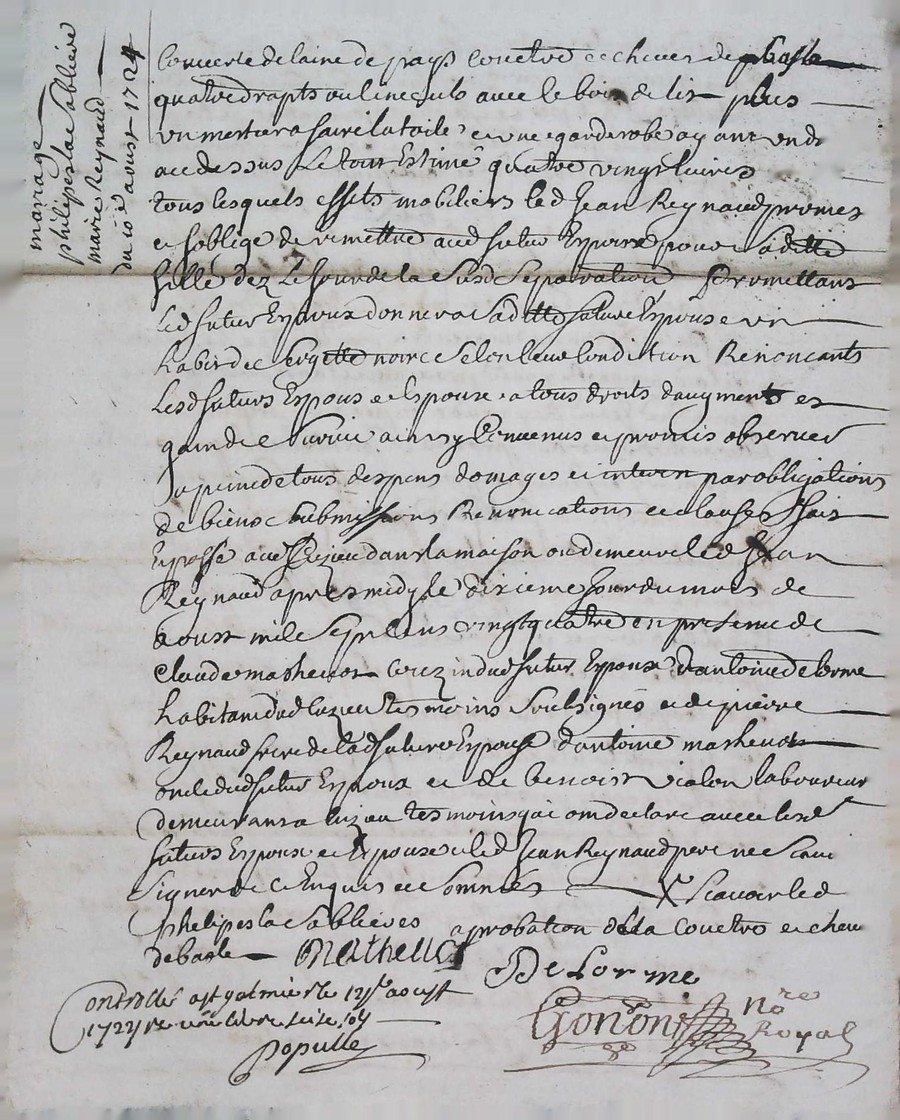 mariage
philipes la Sabliere
marie Reynaud
du 10e aoust 1724
Couverte de laine de pays couetre et chever de
quatre drapts ou linceuls avec le bois de lit plus
un mestier a faire la toile et une garderobe ayant
au dessus Le tout Estimé quatre vingt livres
tous lesquels effets mobiliers led Jean Reynaud promet
et soblige de remettre aud futur Epoux pour Sa ditte
fille dez Le Jour de la Susd Separation Promettant
Led futur Epoux donner a Sa ditte future Epouse un
habit de Sergette noire Selon leur Condition Renoncants
Lesd futurs Epoux et Epouse a tous droits daugment et
gain de Survie ainsy Convenus et promis observer
a peine de tous despens domages et interin par obligations
de biens Submissions Renonciations et clauses Fait
Et passé au dans la maison ou demeure led Jean
Reynaud apres midy le dixieme Jour du mois de
aoust mile Sept Cens vingt quatre en presence de
Claude mathevot dud futur Epoux dantoine delorme
habitan dud tesmoins Soubsignés et de pierre
Reynaud frere de lad future Epouse dantoine mathevot
oncle dud futur Epoux et de benoist vialon laboureur
demeurans a tesmoins qui ont declaré avec lesd
futurs Epoux et Epouse et led Jean Reynaud pere ne Scavoir
Signer de ce Enquis et Sommés Scavoir led
phelipes la Sablieres aprobation de la Couetre et chever
de basle Mathevot
De Lorme
Controllé a St galmier le 12e aoust
1724 Re une livre seize
Populle
Gonon Nore
Royal